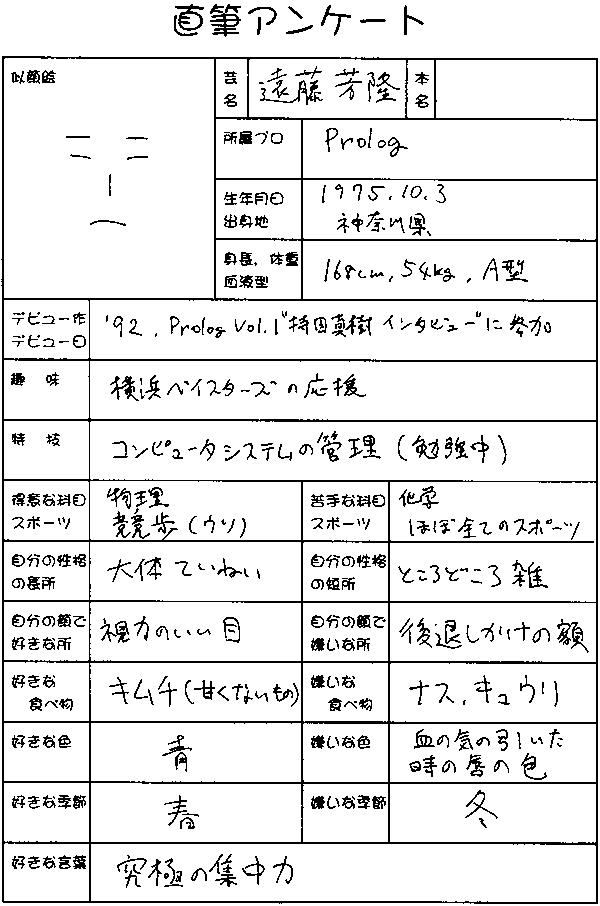 直筆アンケート
似顔絵
芸名
遠藤芳隆
本名
所属プロ
Prolog
生年月日
出身地
1975.10.3
神奈川県
身長、体重
血液型
168cm, 54kg, A型
デビュー作
デビュー日
'92, Prolog Vol.1"持田真樹インタビュー"に参加
趣味
横浜ベイスターズの応援
特技
コンピュータシステムの管理(勉強中)
得意な科目
スポーツ
物理
競歩(ウソ)
苦手な科目
スポーツ
化学
ほぼ全てのスポーツ
自分の性格
の長所
大体ていねい
自分の性格
の短所
ところどころ雑
自分の顔で
好きな所
視力のいい目
自分の顔で
嫌いな所
後退しかけの額
好きな
食べ物
キムチ(甘くないもの)
嫌いな
食べ物
ナス、キュウリ
好きな色
青
嫌いな色
血の気の引いた
時の唇の色
好きな季節
春
嫌いな季節
冬
好きな言葉
究極の集中力